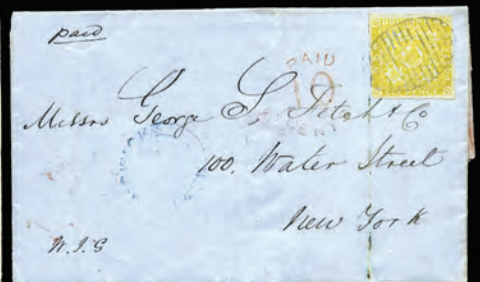 paid
PAID
10
Messrs George S. Fitch & Co
100. Water Street
New York
W.I.G